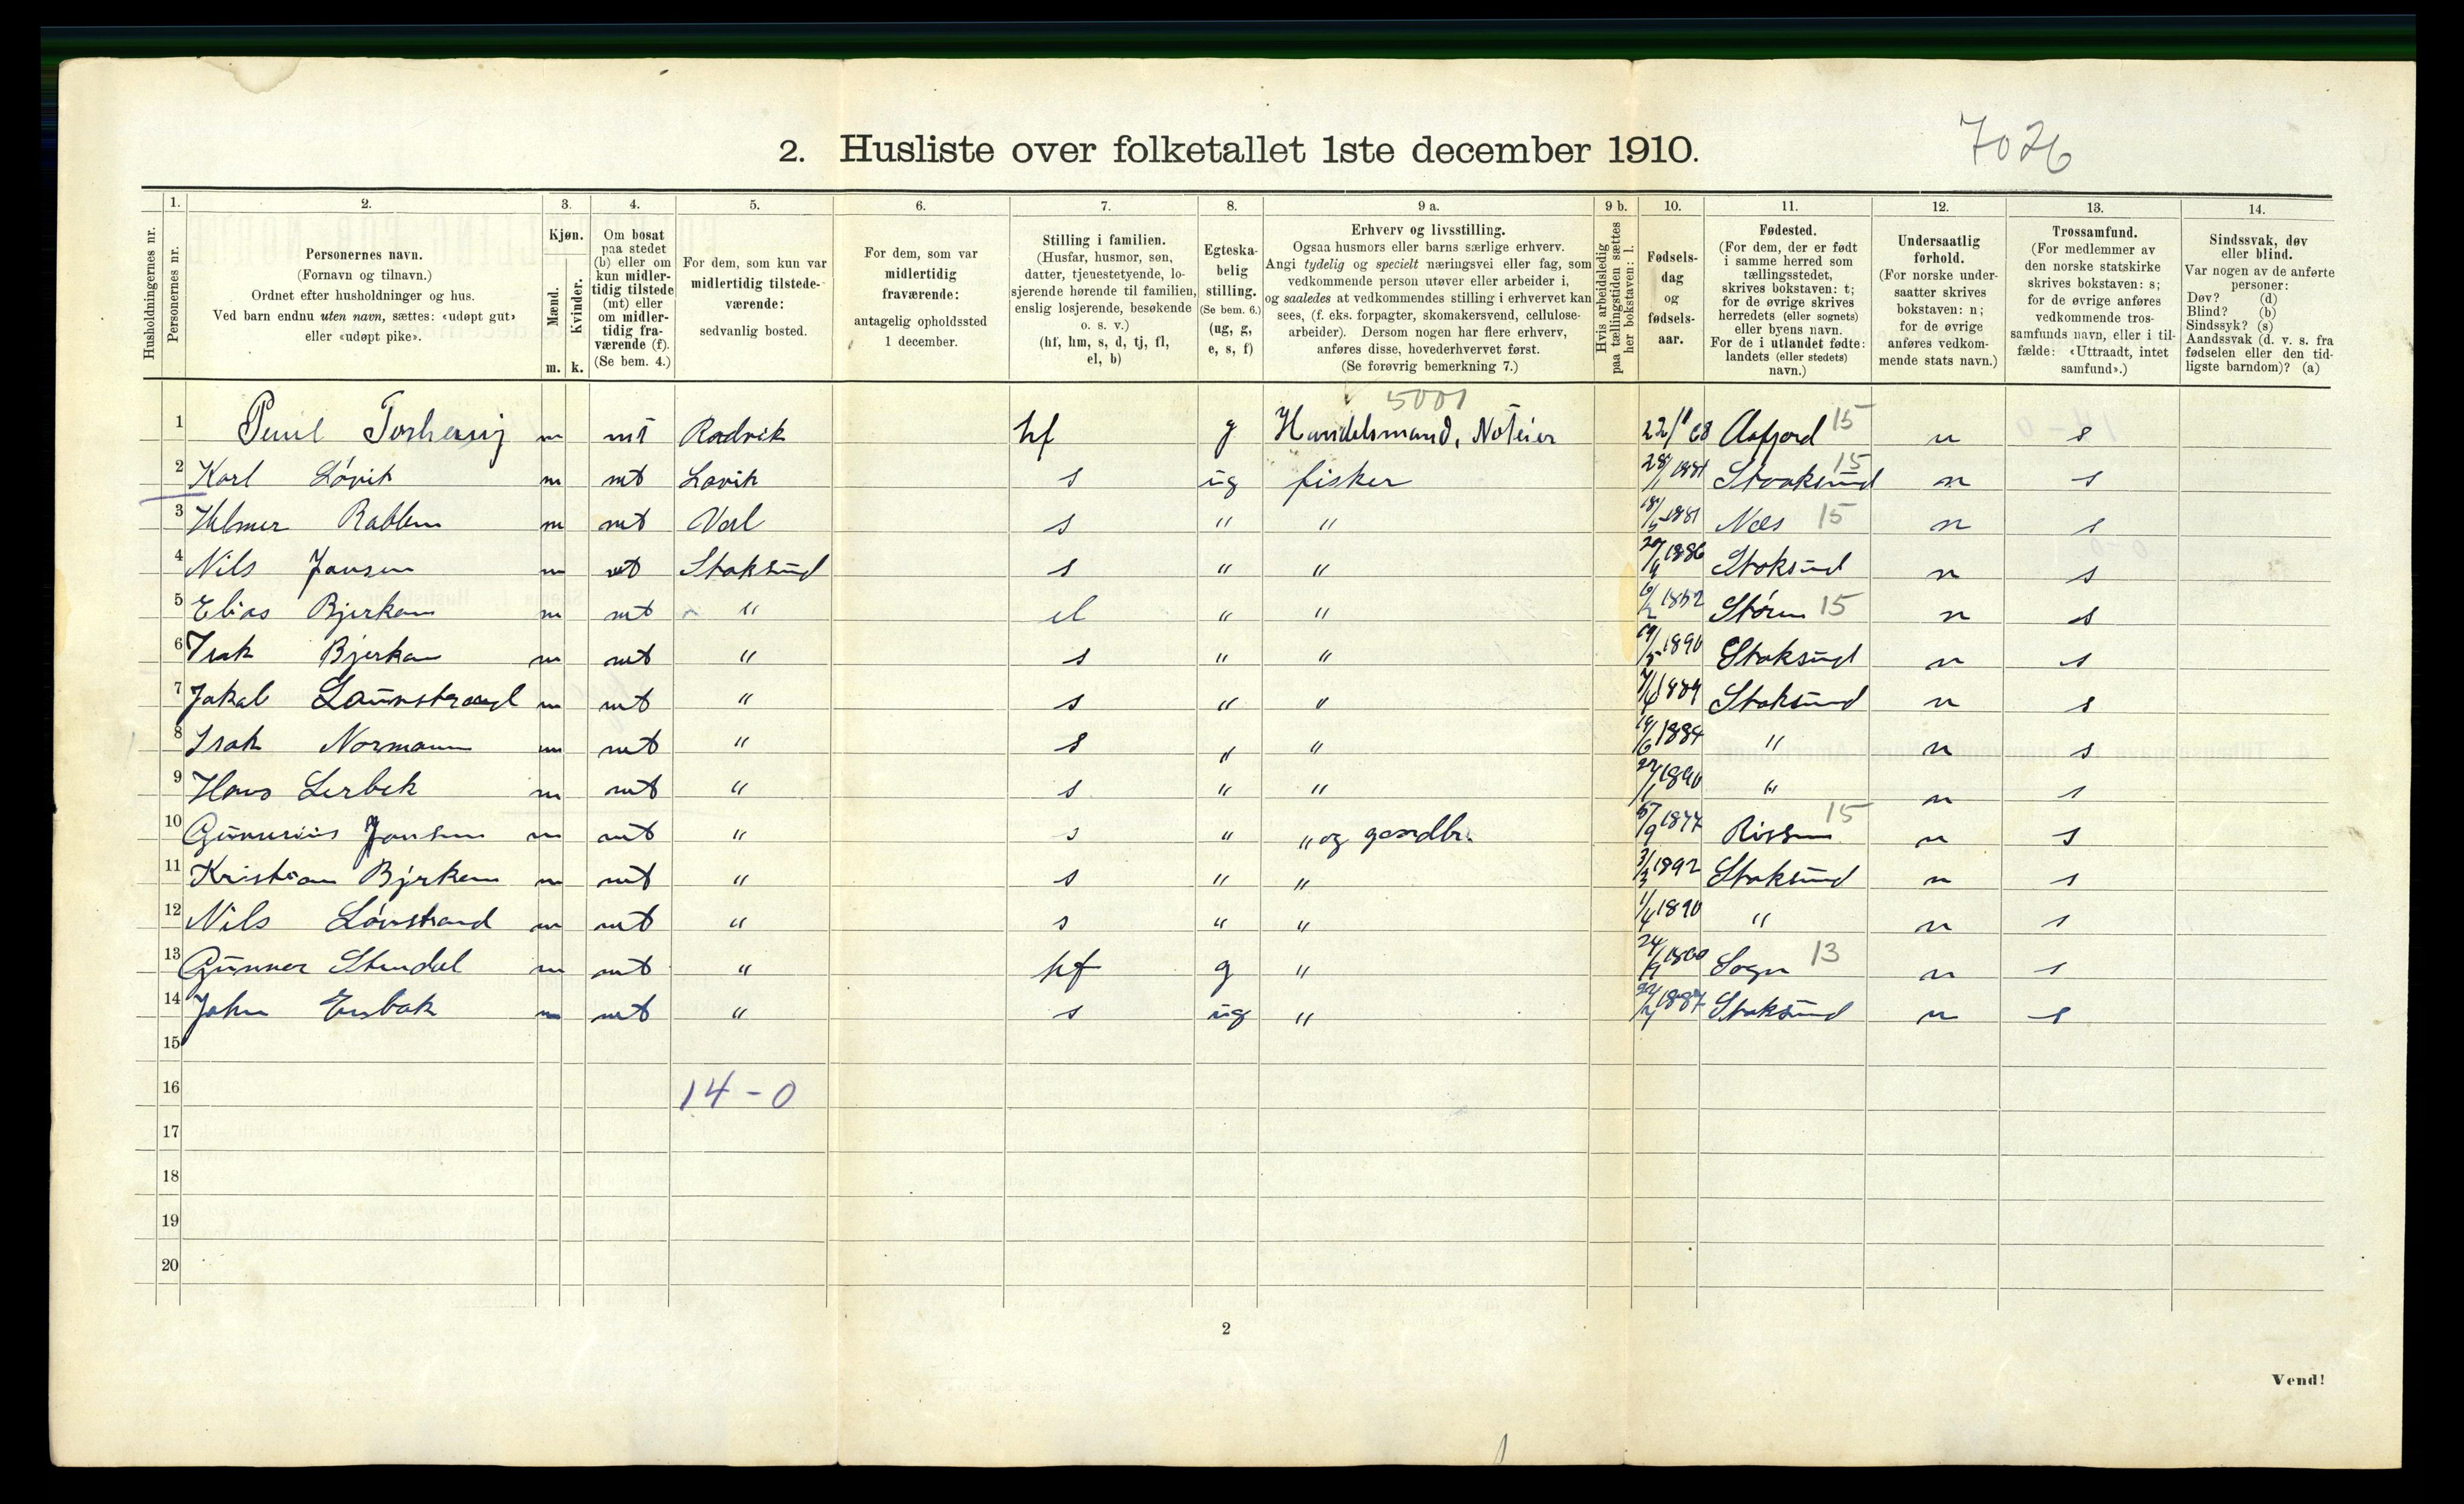 7026
2. Husliste over folketallet 1ste december 1910.
Husholdningernes nr.
1.
Personernes nr.
2.
Personernes navn.
(Fornavn og tilnavn.)
Ordnet efter husholdninger og hus.
Ved barn endnu uten navn, sættes: «udøpt gut»
eller «udøpt pike».
3.
Kjøn.
Mænd.
Kvinder.
m. k.
4.
Om bosat
paa stedet
(b) eller om
kun midler-
tidig tilstede
(mt) eller
om midler-
tidig fra-
værende (f).
(Se bem. 4.)
5.
For dem, som kun var
midlertidig tilstede-
værende:
sedvanlig bosted.
6.
For dem, som var
midlertidig
fraværende:
antagelig opholdssted
1 december.
7.
Stilling i familien.
(Husfar, husmor, søn,
datter, tjenestetyende, lo-
sjerende hørende til familien,
enslig losjerende, besøkende
o. s. v.)
(hf, hm, s, d, tj, fl,
el, b)
8.
Egteska-
belig
stilling.
(Se bem. 6.)
(ug, g,
e, s, f)
9 a.
Erhverv og livsstilling.
Ogsaa husmors eller barns særlige erhverv.
Angi tydelig og specielt næringsvei eller fag, som
vedkommende person utøver eller arbeider i,
og saaledes at vedkommendes stilling i erhvervet kan
sees, (f. eks. forpagter, skomakersvend, cellulose-
arbeider). Dersom nogen har flere erhverv,
anføres disse, hovederhvervet først.
(Se forøvrig bemerkning 7.)
9 b.
Hvis arbeidsledig
paa tællingstiden sættes
her bokstaven: l.
10.
Fødsels-
dag
og
fødsels-
aar.
11.
Fødested.
(For dem, der er født
i samme herred som
tællingsstedet,
skrives bokstaven: t;
for de øvrige skrives
herredets (eller sognets)
eller byens navn.
For de i utlandet fødte:
landets (eller stedets)
navn.)
12.
Undersaatlig
forhold.
(For norske under-
saatter skrives
bokstaven: n;
for de øvrige
anføres vedkom-
mende stats navn.)
13.
Trossamfund.
(For medlemmer av
den norske statskirke
skrives bokstaven: s;
for de øvrige anføres
vedkommende tros-
samfunds navn, eller i til-
fælde: «Uttraadt, intet
samfund».)
14.
Sindssvak, døv
eller blind.
Var nogen av de anførte
personer:
Døv? (d)
Blind? (b)
Sindssyk? (s)
Aandssvak (d. v. s. fra
fødselen eller den tid-
ligste barndom)? (a)
5001
1 m mt Radvik hf g Handelsmand, Noteier 22/11 68 Aafjord 15 n s
2 Karl Løvik m mt Lavik s ug fisker 28/1 1881 Stoaksund 15 n s
3 Hilmer Rabben m mt s " " 1881 Næs 15 n s
4 Nils Jansen m mt Stoksund s " " 1886 Stoksund n s
5 Elias Bjerkan m mt " el " " 1852 Stören 15 n s
6 Isak Bjerkan m mt " s " " 1890 Stoksund n s
7 Jakob m mt " s " " Stoksund n s
8 Isak Normann m mt " s " " 1884 " n s
9 Hans Lerbek m mt " s " " 1890 " n s
10 Jansen m mt " s " " og gaardbr. 1877 Rissen 15 n s
11 Kristian Bjerkan m mt " s " " 3/3 1892 Stoksund n s
12 Nils Lövstrand m mt " s " " 1/4 1890 " n s
13 Gunner Stendal m mt " hf g " 1860 Sogn 13 n s
14 John m mt " s ug " 1887 Stoksund n s
15
16 14 - 0
17
18
19
20
2
Vend!